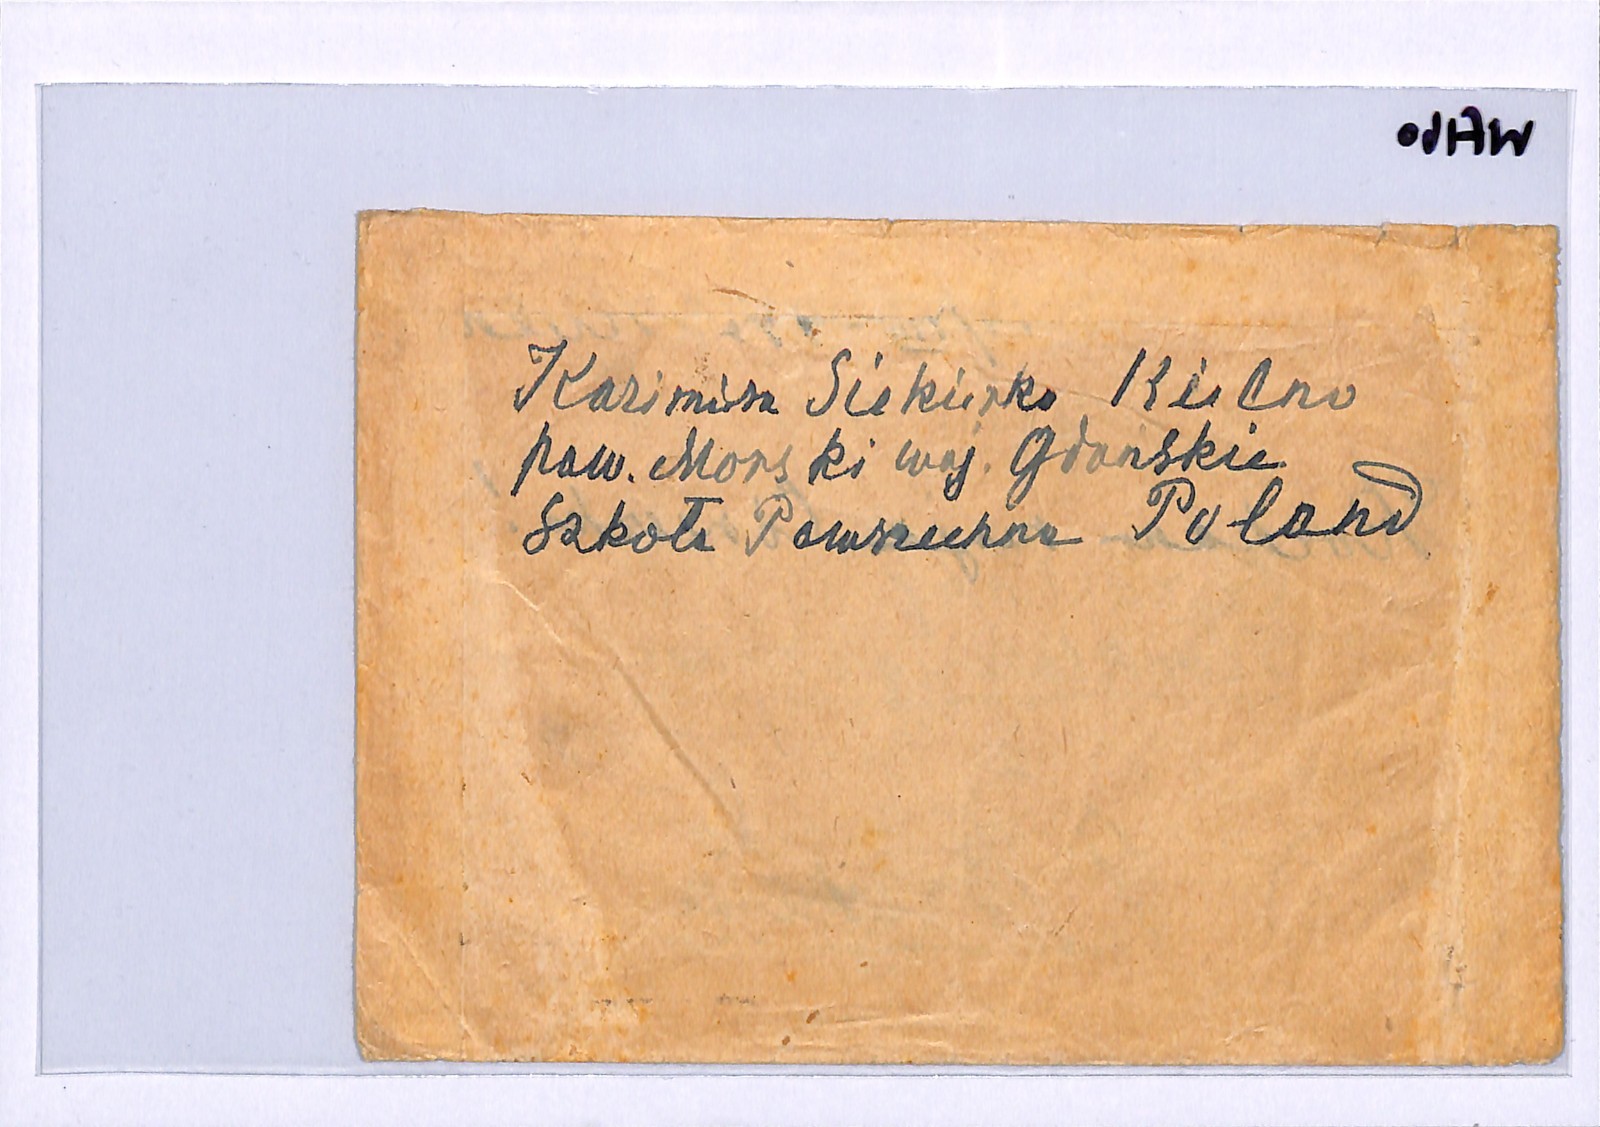 Kazimierz Siekierko Kielno
pow. Morski woj. Gdańskie
Szkoła Powszechna Poland